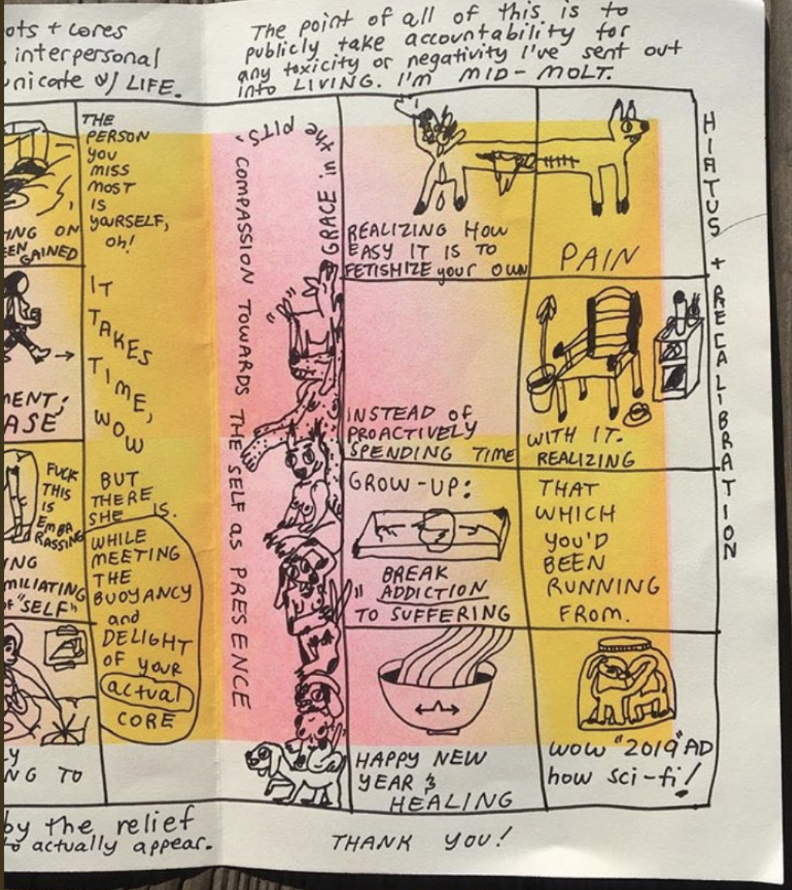 ots + cores
interpersonal
unicate w/ LIFE.
The point of all of this is to
publicly take accountability for
any toxicity or negativity I've sent out
into LIVING. I'm MID-MOLT.
ING ON
EEN GAINED
MENT;
ASE
FUCK
THIS
IS
EMBA
RRASSING
ING
MILIATING
OF "SELF"
Y
NG TO
THE
PERSON
YOU
MISS
MOST
IS
YOURSELF,
oh!
IT
TAKES
TIME,
WOW
BUT
THERE
SHE IS.
WHILE
MEETING
THE
BUOYANCY
and
DELIGHT
OF YOUR
actual
CORE
GRACE "in the PITS"
COMPASSION TOWARDS THE SELF as PRESENCE
REALIZING HOW
EASY IT IS TO
FETISHIZE your OWN
PAIN
INSTEAD OF
PROACTIVELY
SPENDING TIME
WITH IT.
REALIZING
GROW-UP:
BREAK
"ADDICTION
TO SUFFERING
THAT
WHICH
YOU'D
BEEN
RUNNING
FROM.
HAPPY NEW
YEAR &
HEALING
WOW "2019" AD
how sci-fi!
HIATUS + RECALIBRATION
by the relief
to actually appear.
THANK YOU!